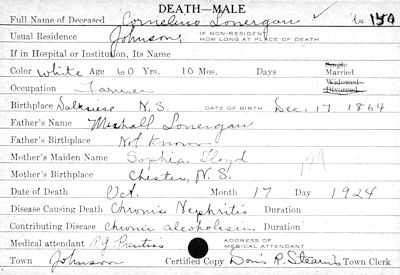 DEATH—MALE
Full Name of Deceased Cornelius Lonergan ✓ to 154
Usual Residence Johnson IF NON-RESIDENT HOW LONG AT PLACE OF DEATH
If in Hospital or Institution, Its Name
Color White Age 60 Yrs. 10 Mos. Days Single Married Widowed Divorced
Occupation Farmer
Birthplace N. S. DATE OF BIRTH Dec. 17 1864
Father's Name Lonergan
Father's Birthplace Not Known
Mother's Maiden Name Sophia Floyd
Mother's Birthplace Chester, N. S.
Date of Death Oct. Month 17 Day 1924
Disease Causing Death Chronic Nephritis Duration
Contributing Disease chronic alcoholism Duration
Medical attendant P.G. Prentiss ADDRESS OF MEDICAL ATTENDANT
Town Johnson Certified Copy R. Stearns Town Clerk